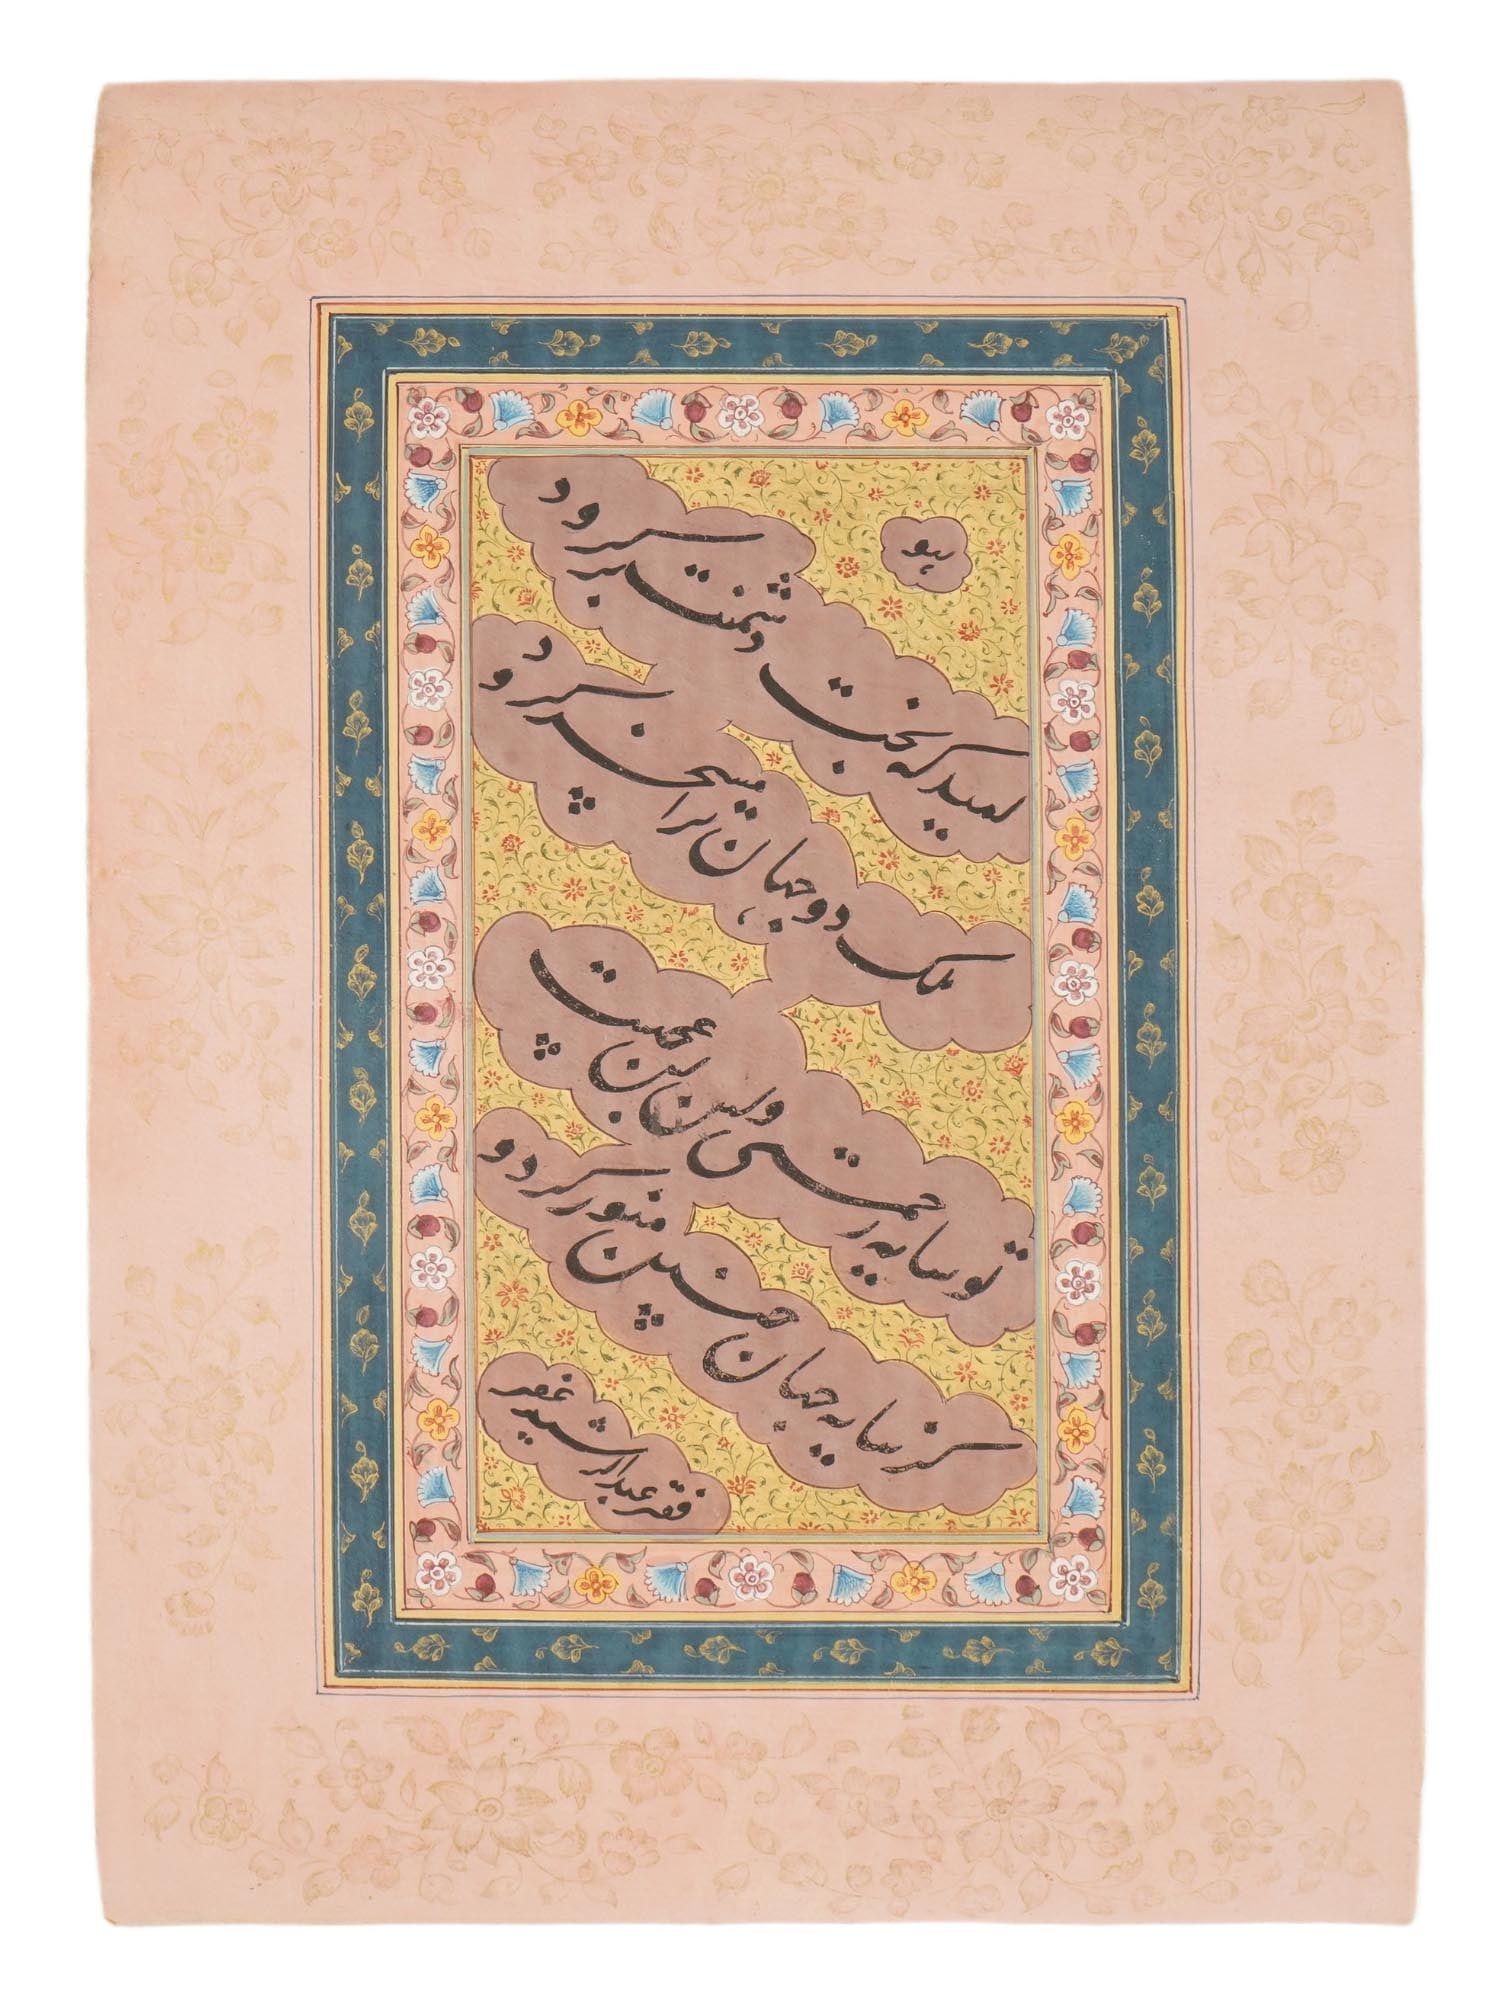 هو
امید که بخت دشمنت بر گردد
ملک دو جهان ترا مسخر گردد
تو سایه رحمتی عجبت
کز سایه جهان چنین منور گردد
فقیر عبدالرشید غفر